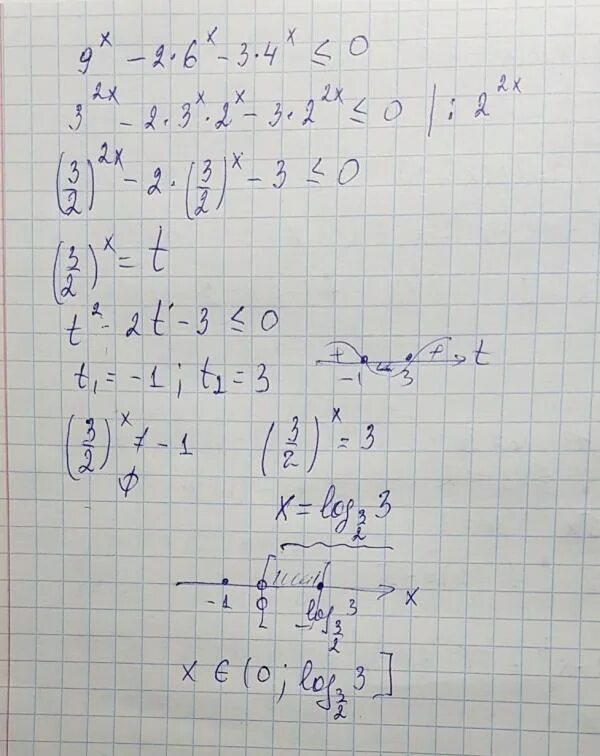 9^x - 2·6^x - 3·4^x ≤ 0
3^{2x} - 2·3^x·2^x - 3·2^{2x} ≤ 0 | : 2^{2x}
(3/2)^{2x} - 2·(3/2)^x - 3 ≤ 0
(3/2)^x = t
t^2 - 2t - 3 ≤ 0
t_1 = -1; t_2 = 3
+ - + t
-1 3
(3/2)^x ≠ -1 (3/2)^x = 3
∅
x = log_{3/2} 3
-1 0 log_{3/2} 3 x
x ∈ (0; log_{3/2} 3]